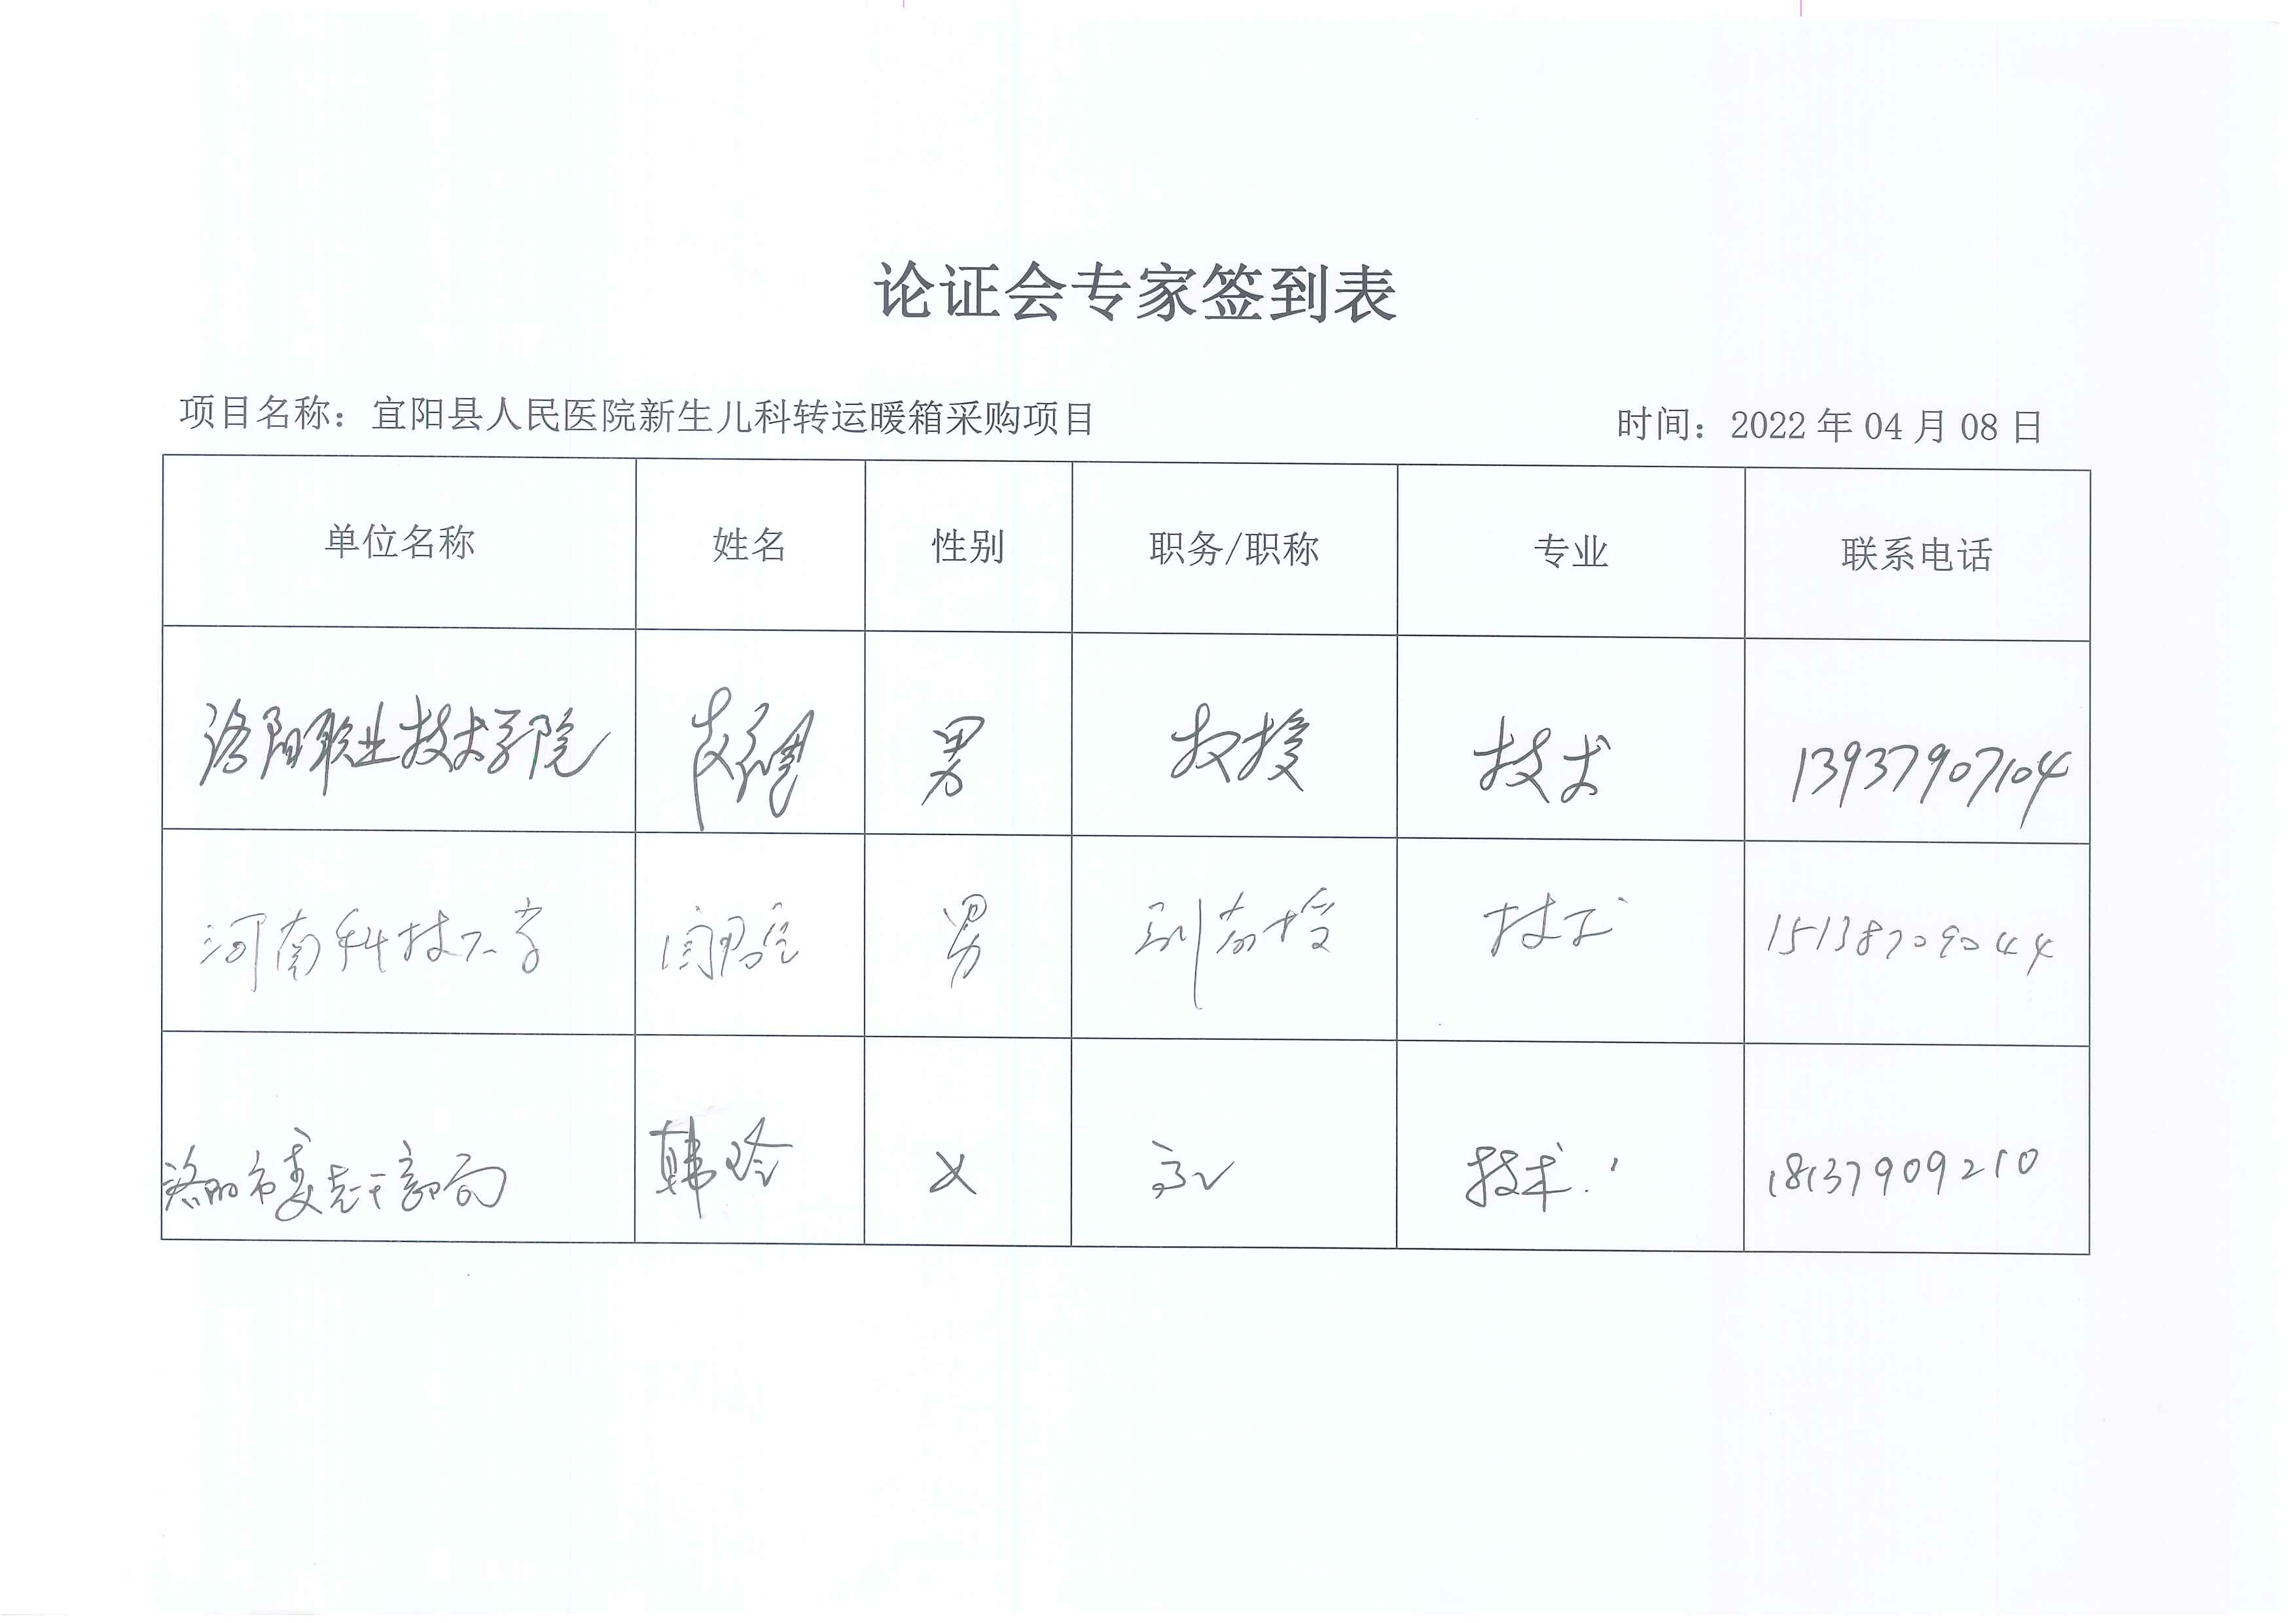 论证会专家签到表
项目名称：宜阳县人民医院新生儿科转运暖箱采购项目 时间：2022年04月08日
单位名称 姓名 性别 职务/职称 专业 联系电话
洛阳职业技术学院 男 教授 技术 13937907104
河南科技大学 男 副教授 技术 15138709044
洛阳市委老干部局 韩玲 女 技术 18137909210